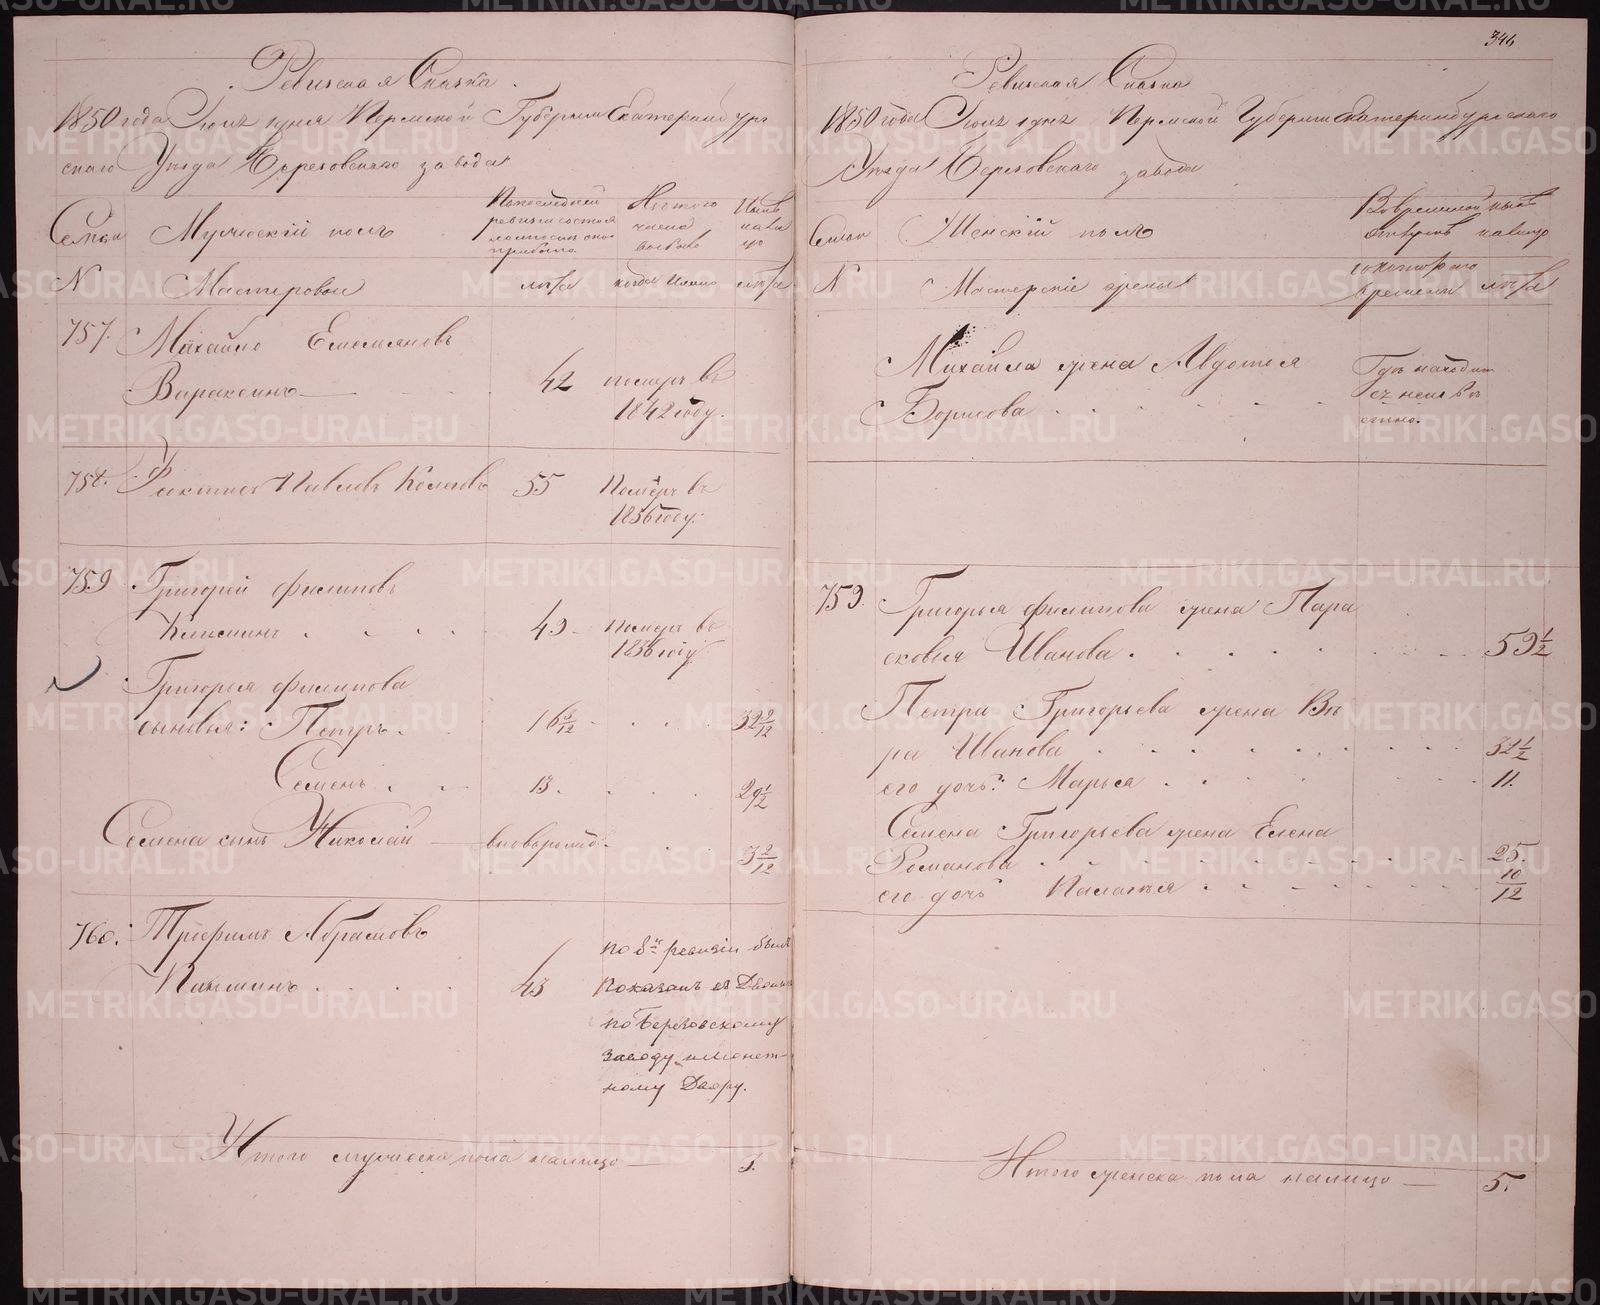 346
Ревизская Сказка
1850 года Пермской Губернии Екатеринбург
скаго Уезда Березовскаго завода
Семьи
Мужеский полъ
По последней
ревизии состояло
прибыло
Из того
числа
выбыло
Ныне
на ли
цо
N
Мастеровые
лета
когда именно
лета
757.
Михайло Емельяновъ
Вараксинъ
42
померъ въ
1842 году.
758.
Павловъ
55
Померъ въ
1836 году.
759
Григорий Филиповъ
49
Померъ въ
1836 году
Григорья Филипова
сыновья: Петръ.
16 3/12
32 9/12
Семенъ
13.
29 1/2
Семена сынъ Николай
вновьрожд
3 2/12
760.
Трофимъ Абрамовъ
43
по 8й ревизии былъ
показанъ
по Березовскому
заводу и Монет-
ному Двору.
Итого мужеска пола налицо
3.
Ревизская Сказка
1850 года Пермской Губернии Екатеринбургскаго
Уезда Березовскаго завода
Семьи
Женский полъ
Во временной
отлучке
ныне
налицо
N
Мастерские жены
съ котораго
времени
лета
Михайла жена Авдотья
Борисова
Где находит
ся неизве
стно.
759.
Григорья Филипова жена Пара
сковья Иванова
59 1/2
Петра Григорьева жена Ве
ра Иванова
32 1/2
его дочь: Марья
11.
Семена Григорьева жена Елена
Романова
25.
его дочь Палагея
10/12
Итого женска пола налицо
5.
METRIKI.GASO-URAL.RU